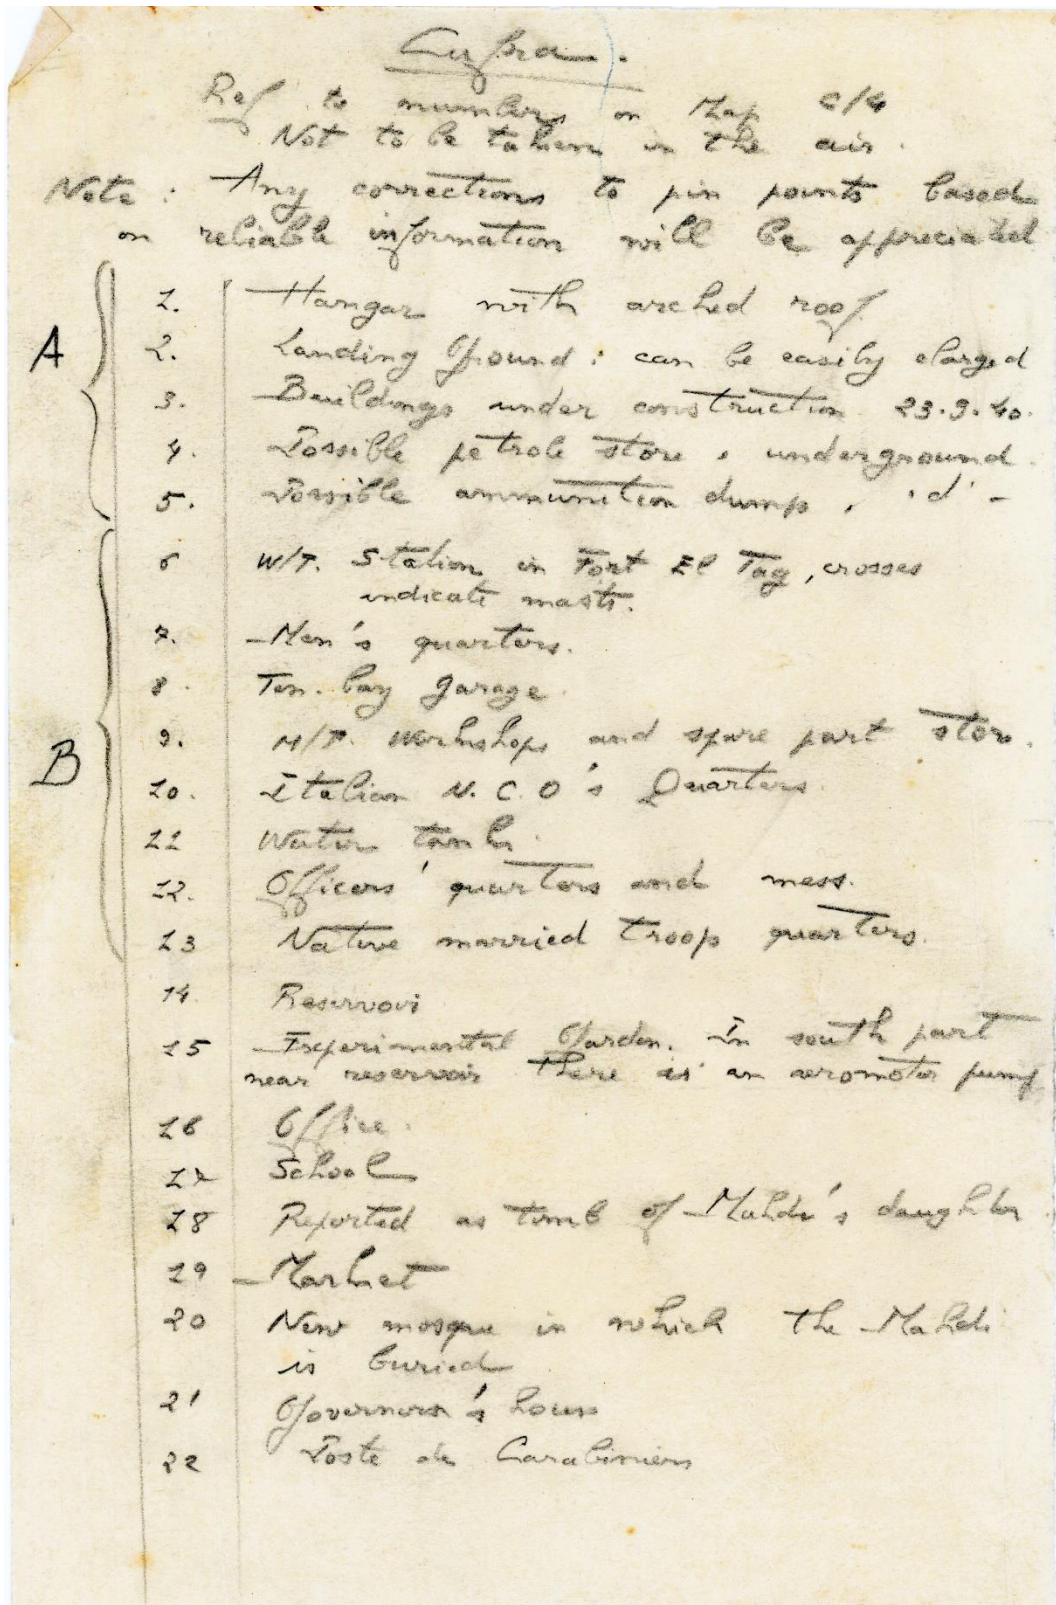 Cufra.
Ref to numbers on Map C/4
Not to be taken in the air.
Note: Any corrections to pin points based
on reliable information will be appreciated
A
1. Hangar with arched roof.
2. Landing Ground: can be easily elarged
3. Buildings under construction 23.9.40.
4. Possible petrole store, underground.
5. Possible ammunition dump, 'd' -
B
6 W/T. Station in Fort El Tag, crosses
indicate masts.
7. Men's quarters.
8. Ten. bay garage.
9. M/T. Workshops and spare part store.
10. Italian N.C.O's Quarters.
11 Water tank.
12. Officers' quarters and mess.
13 Native married troop quarters.
14. Reservoir
15 Experimental Garden. In south part
near reservoir there is an aeromotor pump
16 Office.
17 School
18 Reported as tomb of Mahdi's daughter.
19 Market
20 New mosque in which the Mahdi
is buried
21 Governor's house
22 Poste de Carabiniers